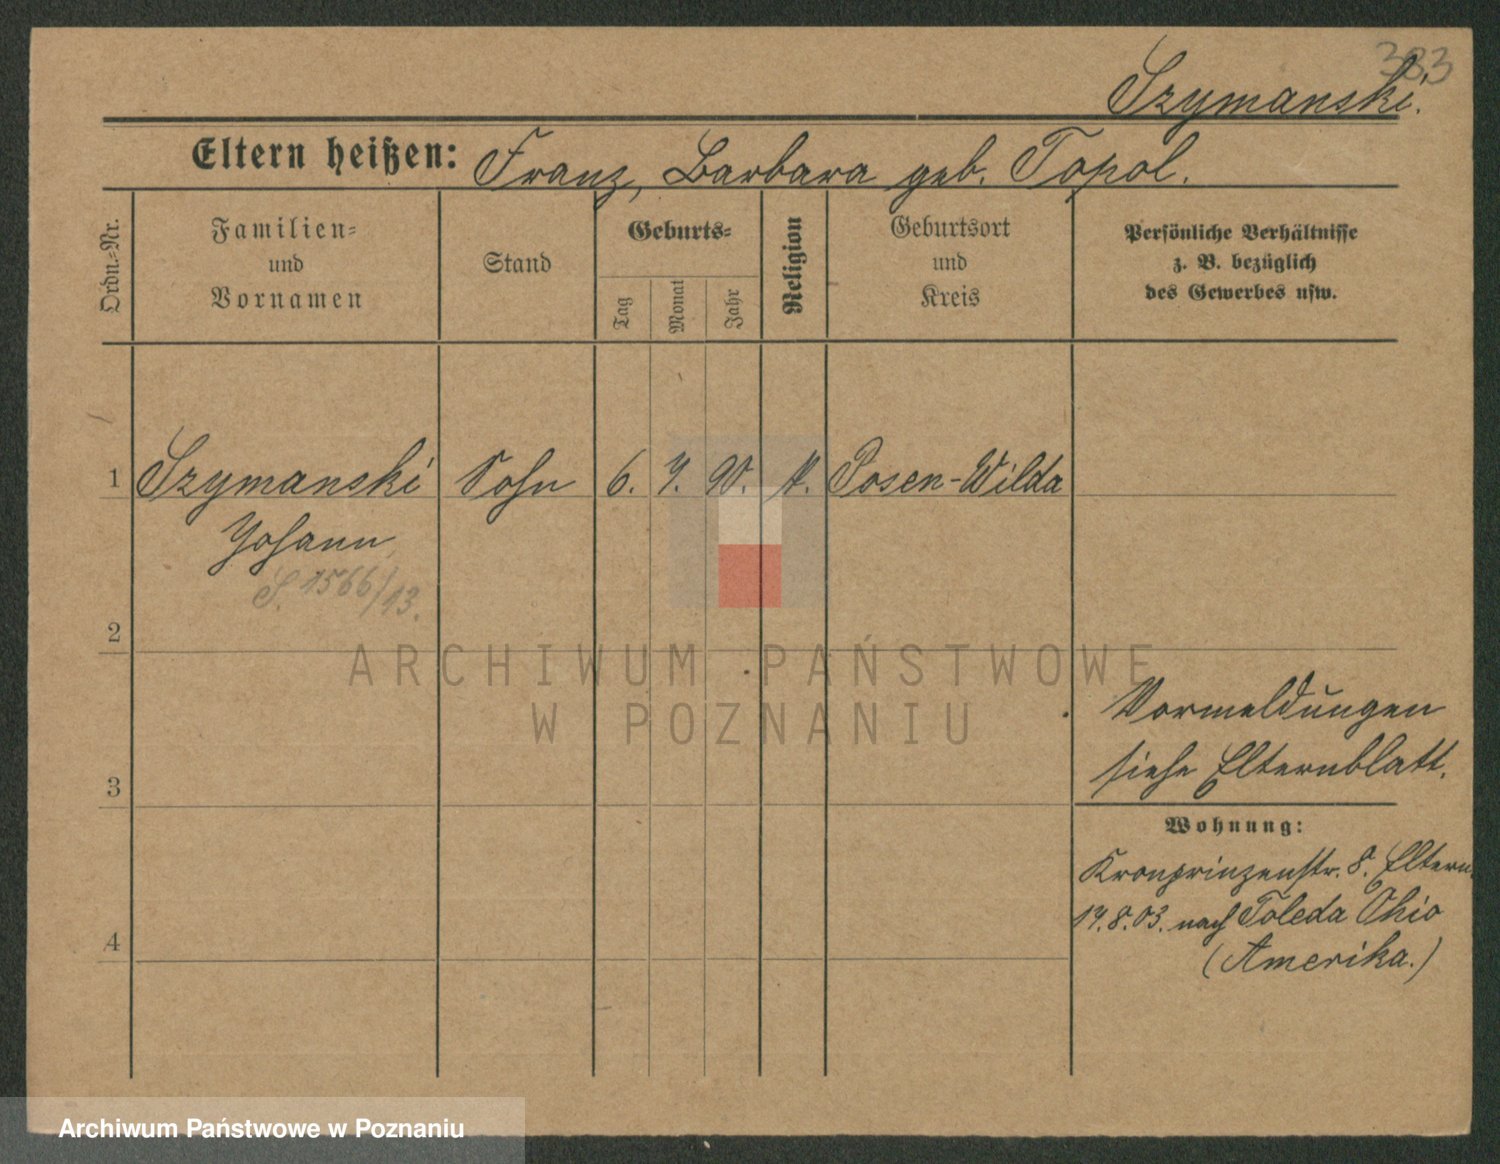 383
Szymanski.
Eltern heißen: Franz, Barbara geb. Topol.
Ordn.-Nr.
Familien-
und
Vornamen
Stand
Geburts-
Tag
Monat
Jahr
Religion
Geburtsort
und
Kreis
Persönliche Verhältnisse
z. B. bezüglich
des Gewerbes usw.
1 Szymanski Sohn 6. 7. Posen-Wilda
Johann
S. 1566/13.
2
ARCHIWUM PAŃSTWOWE
W POZNANIU
Vormeldungen
siehe Elternblatt.
3
Wohnung:
Kronprinzenstr. 8. Eltern.
17.8.03. nach Toleda Ohio
4
(Amerika.)
Archiwum Państwowe w Poznaniu